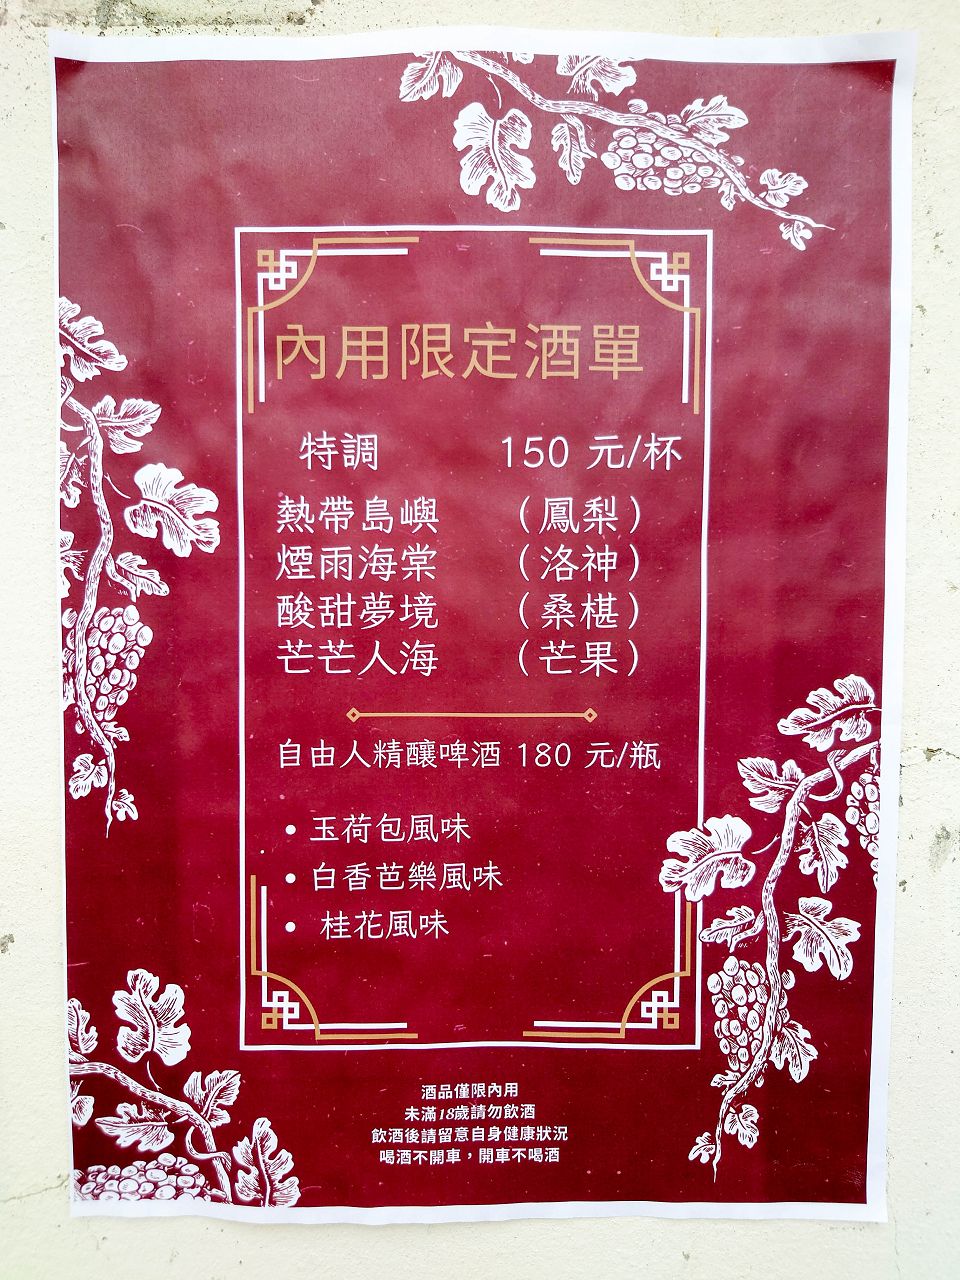 內用限定酒單
特調 150 元/杯
熱帶島嶼 （鳳梨）
煙雨海棠 （洛神）
酸甜夢境 （桑椹）
芒芒人海 （芒果）
自由人精釀啤酒 180 元/瓶
• 玉荷包風味
• 白香芭樂風味
• 桂花風味
酒品僅限內用
未滿18歲請勿飲酒
飲酒後請留意自身健康狀況
喝酒不開車，開車不喝酒